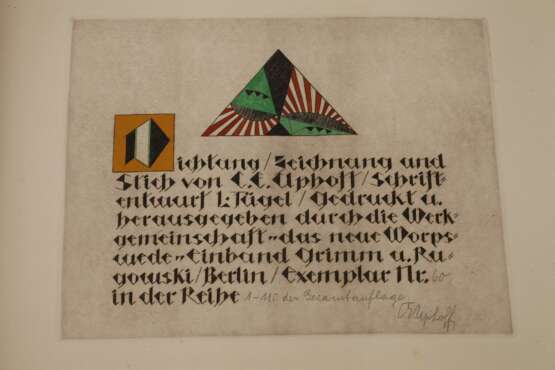 Dichtung/Zeichnung und
Stich von C.E. Uphoff/Schrift-
entwurf L. Tügel/Gedruckt u.
herausgegeben durch die Werk-
gemeinschaft „das neue Worps-
wede“ Einband Grimm u. Ru-
gowski/Berlin/Exemplar Nr. 60
in der Reihe 1-115 der Gesamtauflage
CEUphoff